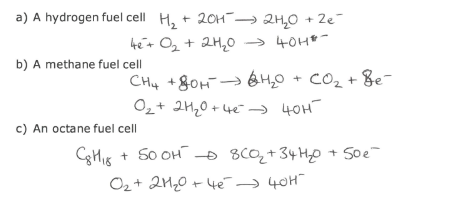 a) A hydrogen fuel cell H₂ + 2OH⁻ → 2H₂O + 2e⁻
4e⁻ + O₂ + 2H₂O → 4OH⁻
b) A methane fuel cell
CH₄ + 8OH⁻ → 6H₂O + CO₂ + 8e⁻
O₂ + 2H₂O + 4e⁻ → 4OH⁻
c) An octane fuel cell
C₈H₁₈ + 50OH⁻ → 8CO₂ + 34H₂O + 50e⁻
O₂ + 2H₂O + 4e⁻ → 4OH⁻